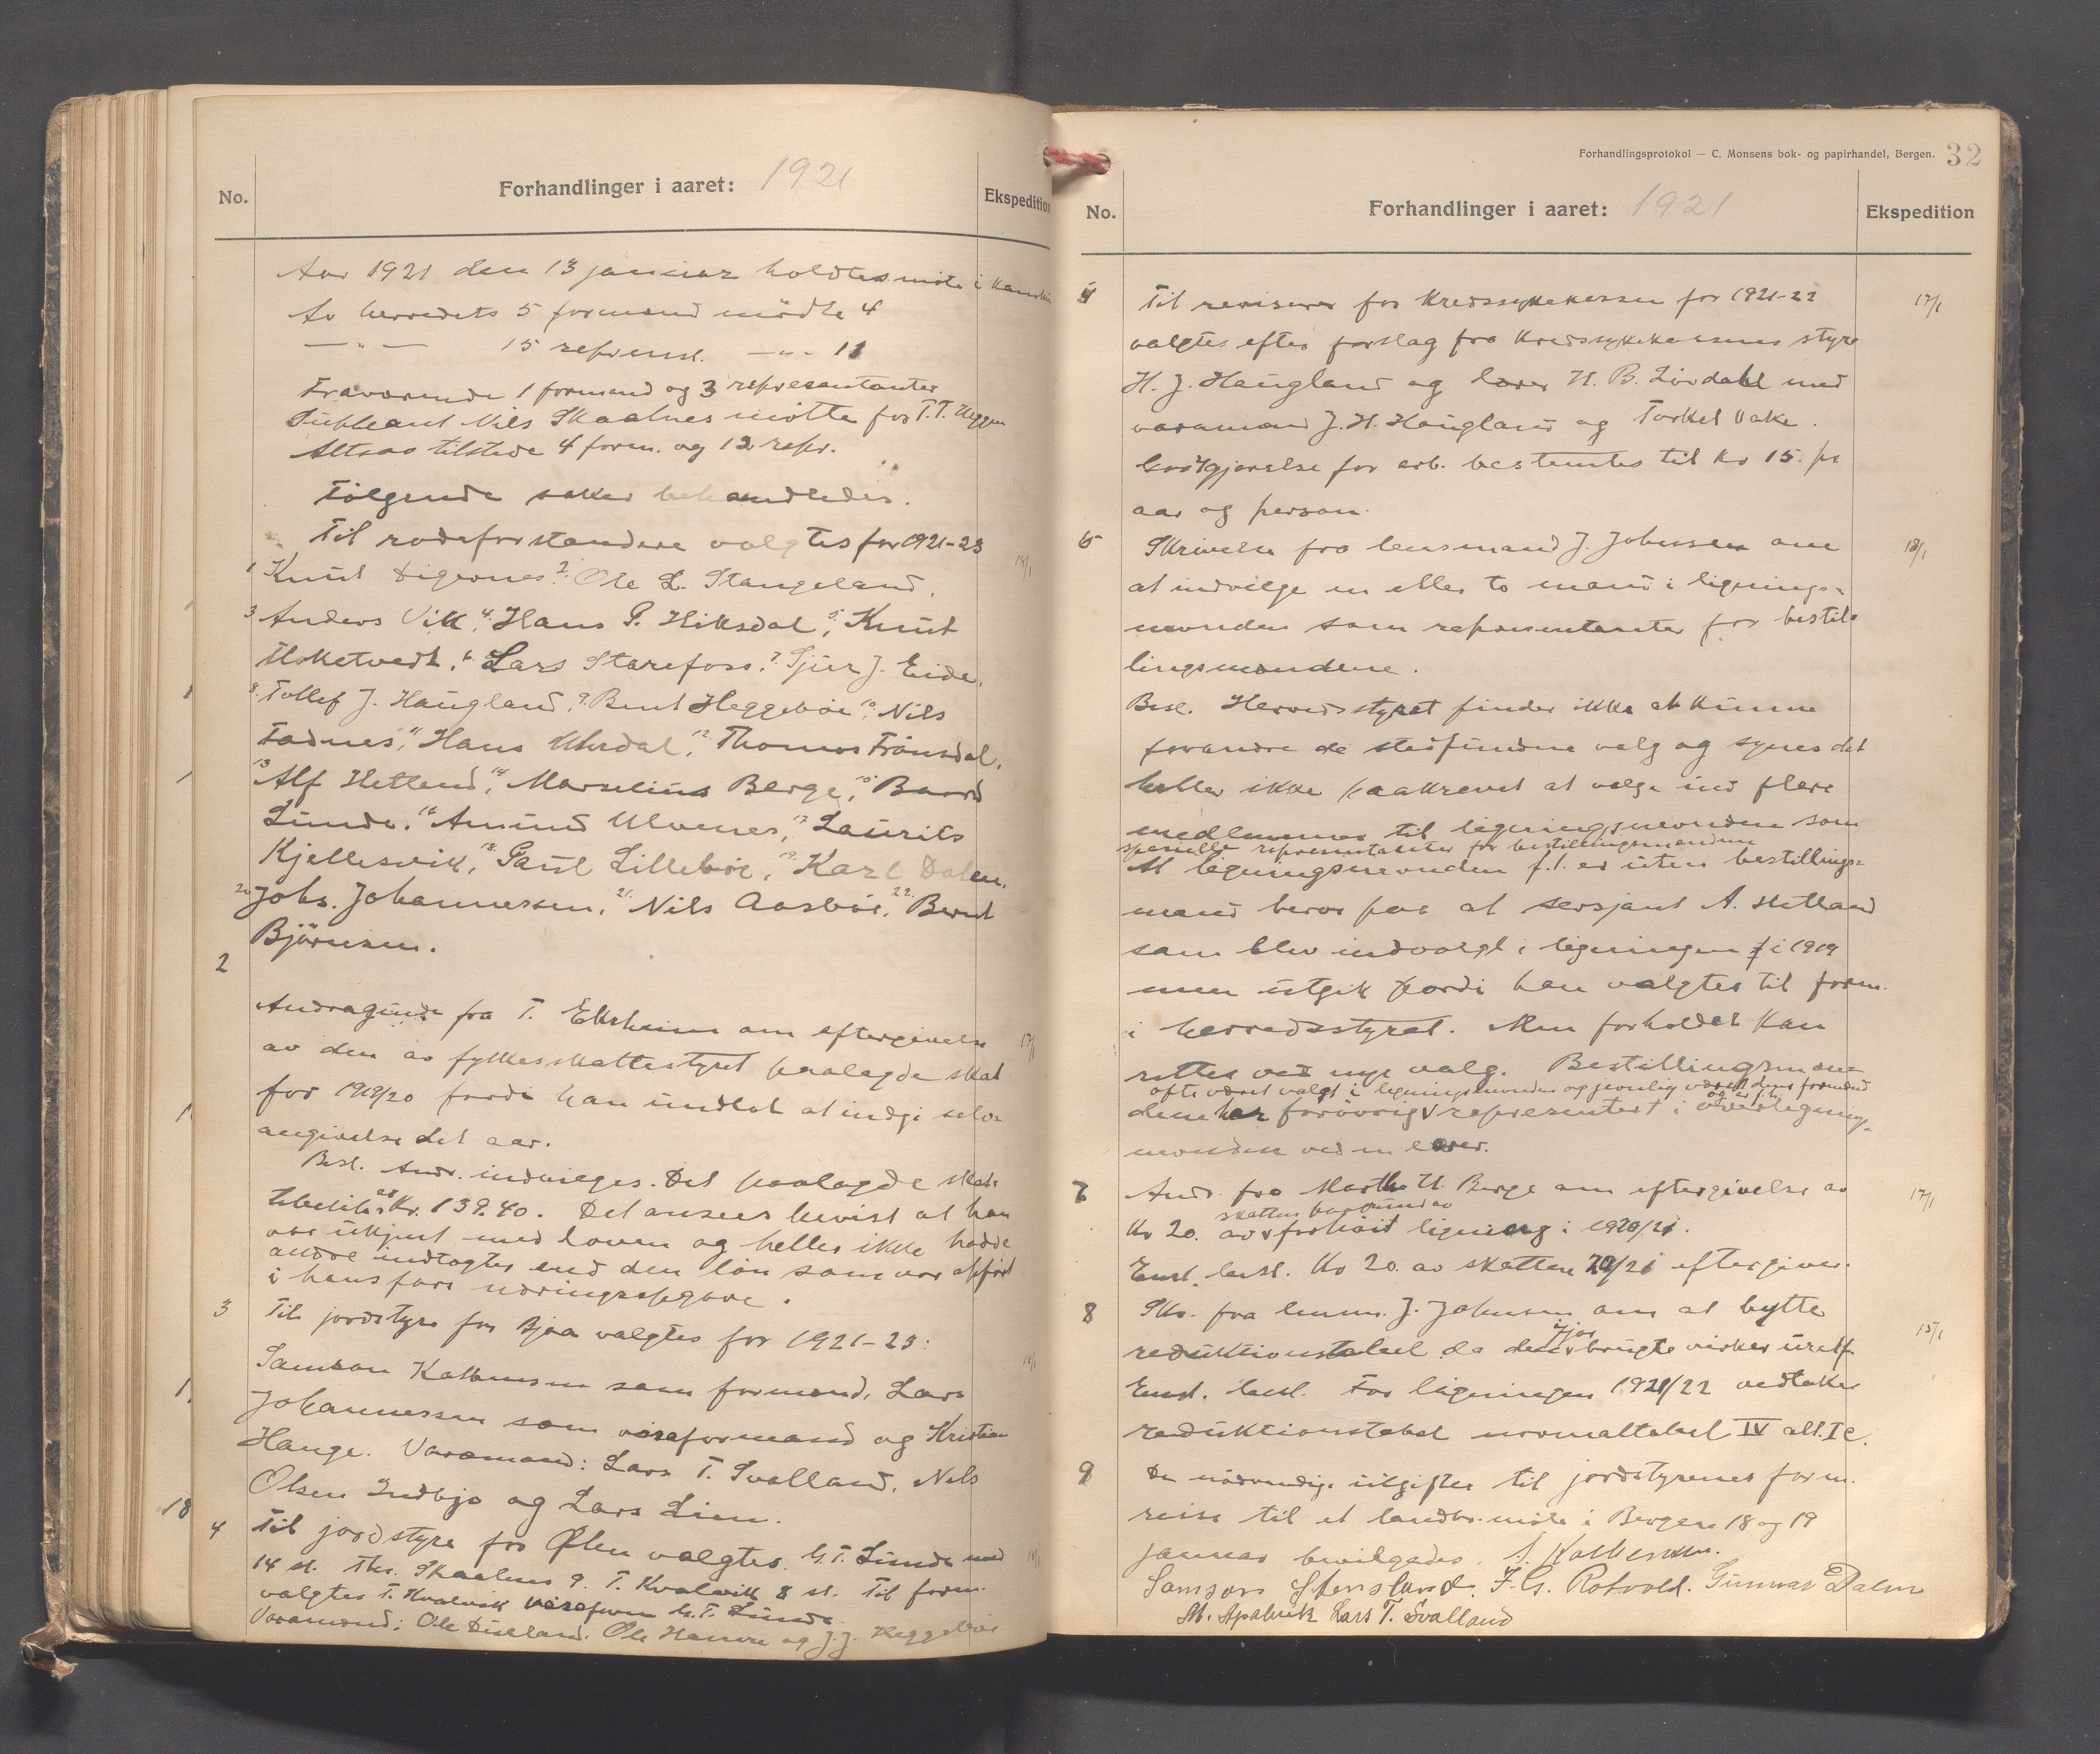 No.
Forhandlinger i aaret: 1921
Ekspedition
Aar 1921 den 13 januar holdtes møte i
Av herredets 5 formænd mødte 4
— " — 15 repræsent. — " — 11
Fraværende 1 formand og 3 repræsentanter
Supleant Nils Skaalnes møtte for T. T. Heggen
Altsaa tilstede 4 form. og 12 repr.
Følgende saker behandledes.
Til rodeforstandere valgtes for 1921-23
14/1
1 Knut Digernes, 2. Ole L. Stangeland,
3 Anders Vik, 4. Hans P. Hiksdal, 5. Knut
Floketvedt, 6 Lars Starefoss, 7 Sjur J. Eide,
8. Tollef J. Haugland, 9. Bent Heggebøe, 10. Nils
Fadnes, 11 Hans Uhrdal, 12 Thomas Frønsdal,
13 Alf Hetland, 14 Marselius Berge, 15. Baard
Lunde, 16 Amund Ulvenes, 17 Laurits
Kjellesvik, 18. Paul Lillebøe, 19. Karl Dalen,
20 Johs. Johannessen, 21. Nils Aasbøe, 22. Bernt
Björnsen.
2
Andragende fra T. Ekrheim om eftergivelse
17/1
av den av fylkesskattestyret paalagde skat
for 1919/20 fordi han undlot at indgi selv=
angivelse det aar.
Besl. Andr. indvilges. Det paalagde skatte
beløp er Kr. 139.40. Det ansees bevist at han
var ukjent med loven og heller ikke hadde
andre indtægter end den løn som var opført
i hans fars næringsopgave.
3 Til jordstyre for Bjoa valgtes for 1921-23:
Samson Kalbensen som formand, Lars
Johannessen som viseformand og Kristian
Hauge. Varamænd: Lars T. Svalland, Nils
Olsen Indbjo og Lars Lien.
4 Til jordstyre for Ølen valgtes. G. T. Lunde med
14 st. Ths. Skaalnes 9. T. Kvalevik 8 st. Til form.
valgtes T. Kvalevik viseform G. T. Lunde.
Varamænd: Ole Dueland. Ole Hamre og J. J. Heggebøe
Forhandlingsprotokol — C. Monsens bok- og papirhandel, Bergen. 32
No.
Forhandlinger i aaret: 1921
Ekspedition
Til revisorer for Kredssykekassen for 1921-22
17/1
valgtes efter forslag fra Kredssykekassens styre
H. J. Haugland og lærer H. B. Lövdahl med
varamænd J. H. Haugland og Torkel Vake.
Godtgjørelse for arb. bestemtes til Kr 15. pr
aar og person.
6 Skrivelse fra lensmand J. Johnsen om
18/1
at indvælge en eller to mænd i lignings=
nevnden som representanter for bestil=
lingsmændene.
Besl. Herredsstyret finder ikke at kunne
forandre de stedfundne valg og synes det
heller ikke paakrevet at vælge ind flere
medlemmer til ligningsnevnden som
specielle representanter for bestillingsmændene
At ligningsnevnden f.t. er uten bestillings=
mand beror paa at sersjant A. Hetland
som blev indvalgt i ligningen i 1919
men utgik fordi han valgtes til form.
i herredsstyret. Men forholdet kan
rettes ved nye valg. Bestillingsmæn=
ofte været valgt i ligningsnevnden og jevnlig været dens formand
og er f.t.
dene har forøvrig representert i overlignings=
nevnden ved en lærer.
7 Andr. fra Martha H. Berge om eftergivelse av
17/1
skatten paa grund av
Kr 20. av forhøiet ligning i 1920/21.
Enst. besl. Kr 20 av skatten 20/21 eftergives.
8 Skr. fra lensm. J. Johnsen om at bytte
15/1
ifjor
reduktionstabel da den brugte virker uretf.
Enst. besl. For ligningen 1921/22 vedtakes
reduktionstabel normaltabel IV alt. I c.
9 De nødvendige utgifter til jordstyrenes form.
reise til et landbr. møte i Bergen 18 og 19
januar bevilgedes. S. Kalbensen.
Samson Stensland. F. G. Rotvold. Gunnar Dalen
M. Apalvik Lars T. Svalland